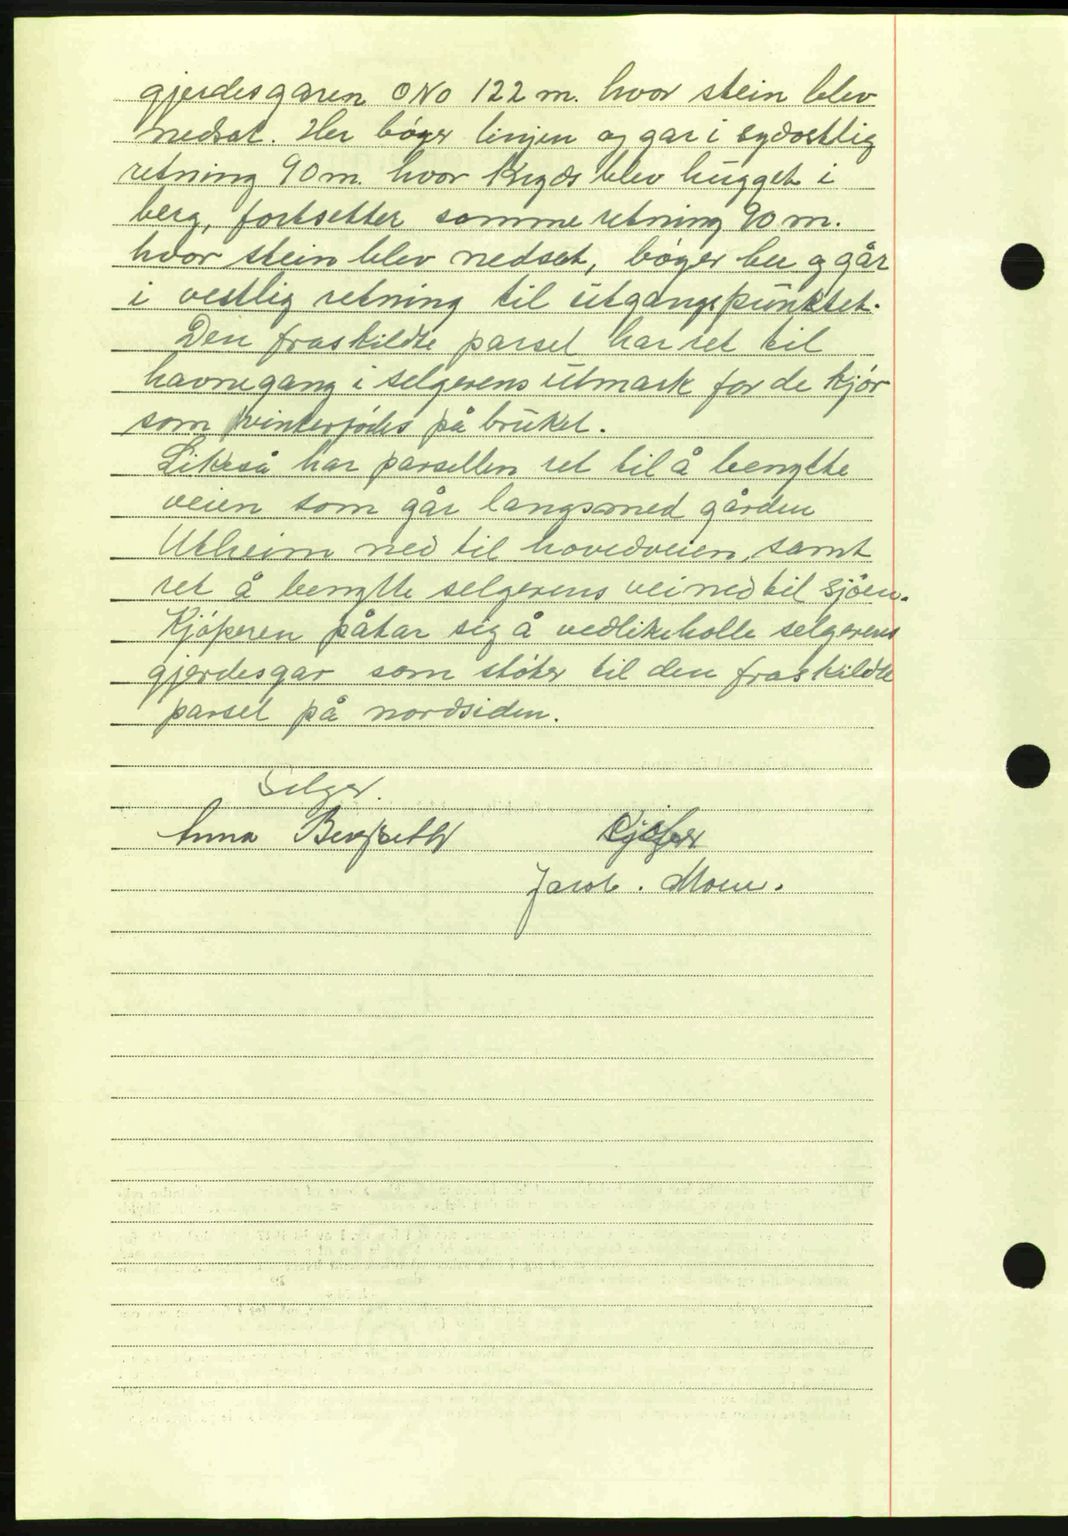 gjerdesgaren ONO 122 m. hvor stein blev
nedsat. Her bøyer linjen og gar i sydostlig
retning 90 m. hvor Kryds blev hugget i
berg, fortsetter samme retning 90 m.
hvor stein blev nedsat, bøyer her og går
i vestlig retning til utgangspunktet.
Den fraskildte parsel har ret til
havnegang i selgerens utmark for de kjør
som vinterfødes på bruket.
Likeså har parsellen ret til å benytte
veien som går langsmed gården
Utheim ned til hovedveien, samt
ret å benytte selgerens vei ned til sjøen.
Kjøperen påtar sig å vedlikeholle selgerens
gjerdesgar som støter til den fraskildte
parsel på nordsiden.
Selger.
Anna Bergseth
Kjøper
Jacob. Moen.